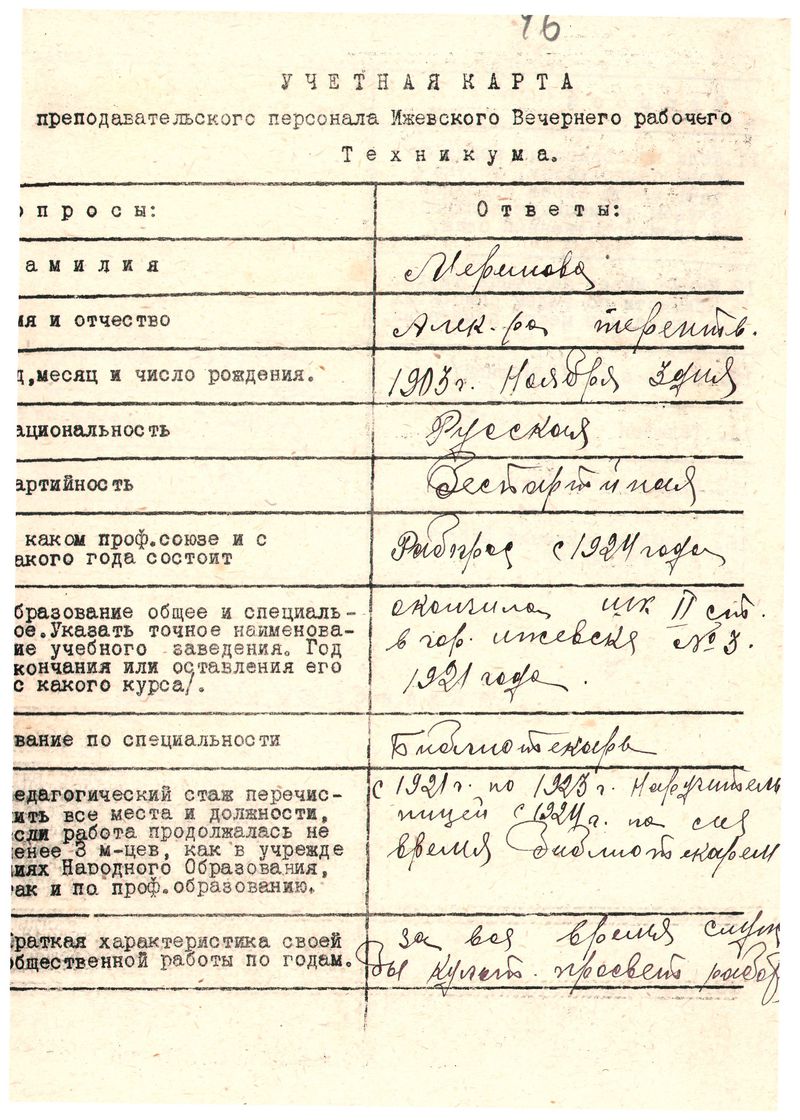 76
УЧЕТНАЯ КАРТА
преподавательского персонала Ижевского Вечернего рабочего
Техникума.
опросы: Ответы:
амилия Меринова
мя и отчество Алек-ра терентв.
д, месяц и число рождения. 1903 г. Ноября 3 дня
ациональность Русская
артийность Беспартийная
каком проф.союзе и с Рабпрос с 1924 года
акого года состоит
бразование общее и специаль- окончила шк II ст.
ое. Указать точное наименова- в гор. ижевске № 3.
ие учебного заведения. Год 1921 года.
кончания или оставления его
с какого курса/.
вание по специальности Библиотекарь
едагогический стаж перечис- с 1921 г. по 1923 г. Нар.учитель
ить все места и должности, ницей с 1924 г. по сие
сли работа продолжалась не время Библиотекарем
енее 3 м-цев, как в учрежде
иях Народного Образования,
ак и по проф.образованию.
раткая характеристика своей за все время служ
общественной работы по годам. бы культ. просвет работ